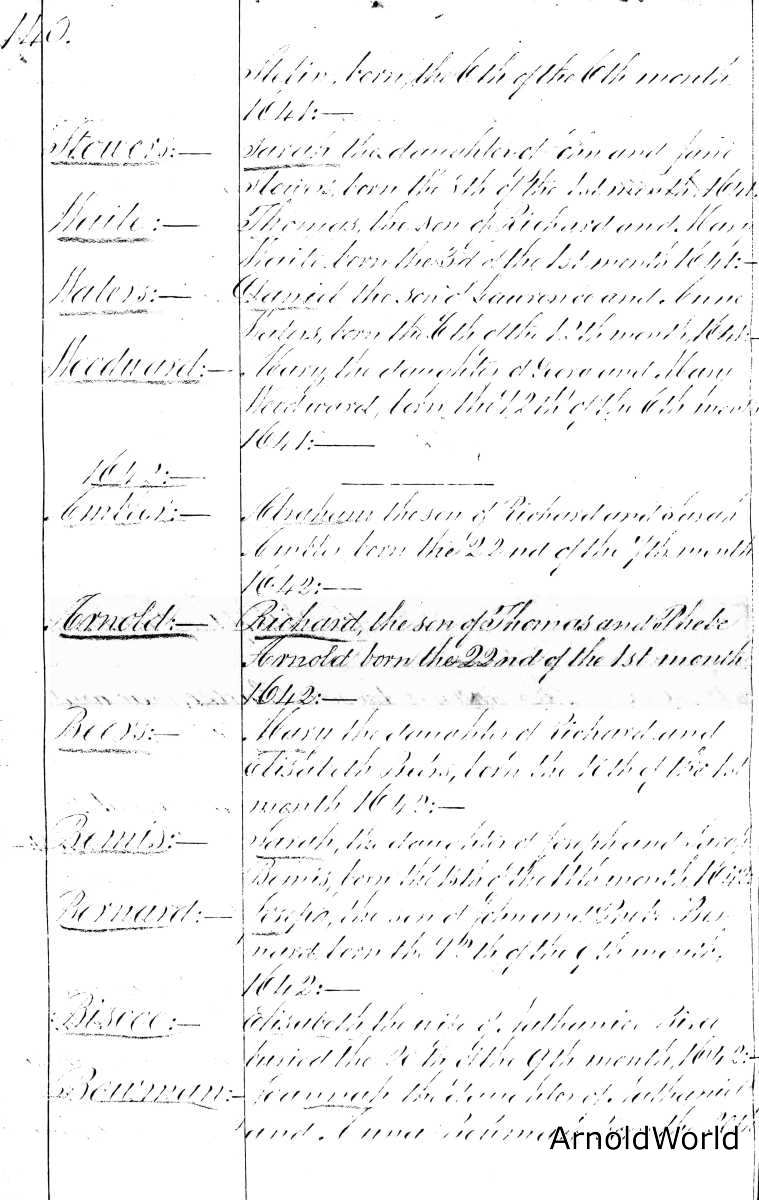 140.
born the 6th of the 6th month
1641:—
Stowers:— Sarah the daughter of and Jane
Stowers, born the 5th of the 1st month, 1641.
Waite:— Thomas, the son of Richard and Mary
Waite, born the 3d of the 1st month 1641:—
Waters:— Daniel the son of Laurence and Anne
Waters, born the 6th of the 12th month, 1641:—
Woodward:— Mary, the daughter of and Mary
Woodward, born the 12th of the 6th month
1641:—
1642:—
Ambler:— Abraham the son of Richard and Sarah
Ambler born the 22nd of the 7th month
1642:—
Arnold:— Richard, the son of Thomas and Phebe
Arnold born the 22nd of the 1st month
1642:—
Beers:— Mary the daughter of Richard and
Elisabeth Beers, born the 10th of the 1st
month 1642:—
Bemis:— Sarah, the daughter of Joseph and Sarah
Bemis, born the 15th of the 11th month, 1642:
Bernard:— Joseph, the son of John and Ber-
nard, born the 12th of the 9th month,
1642:—
Biscoe:— Elisabeth the wife of Nathaniel
buried the 20th of the 9th month, 1642:—
Bowman:— the daughter of Nathaniel
and Anna Bowman, born the
ArnoldWorld